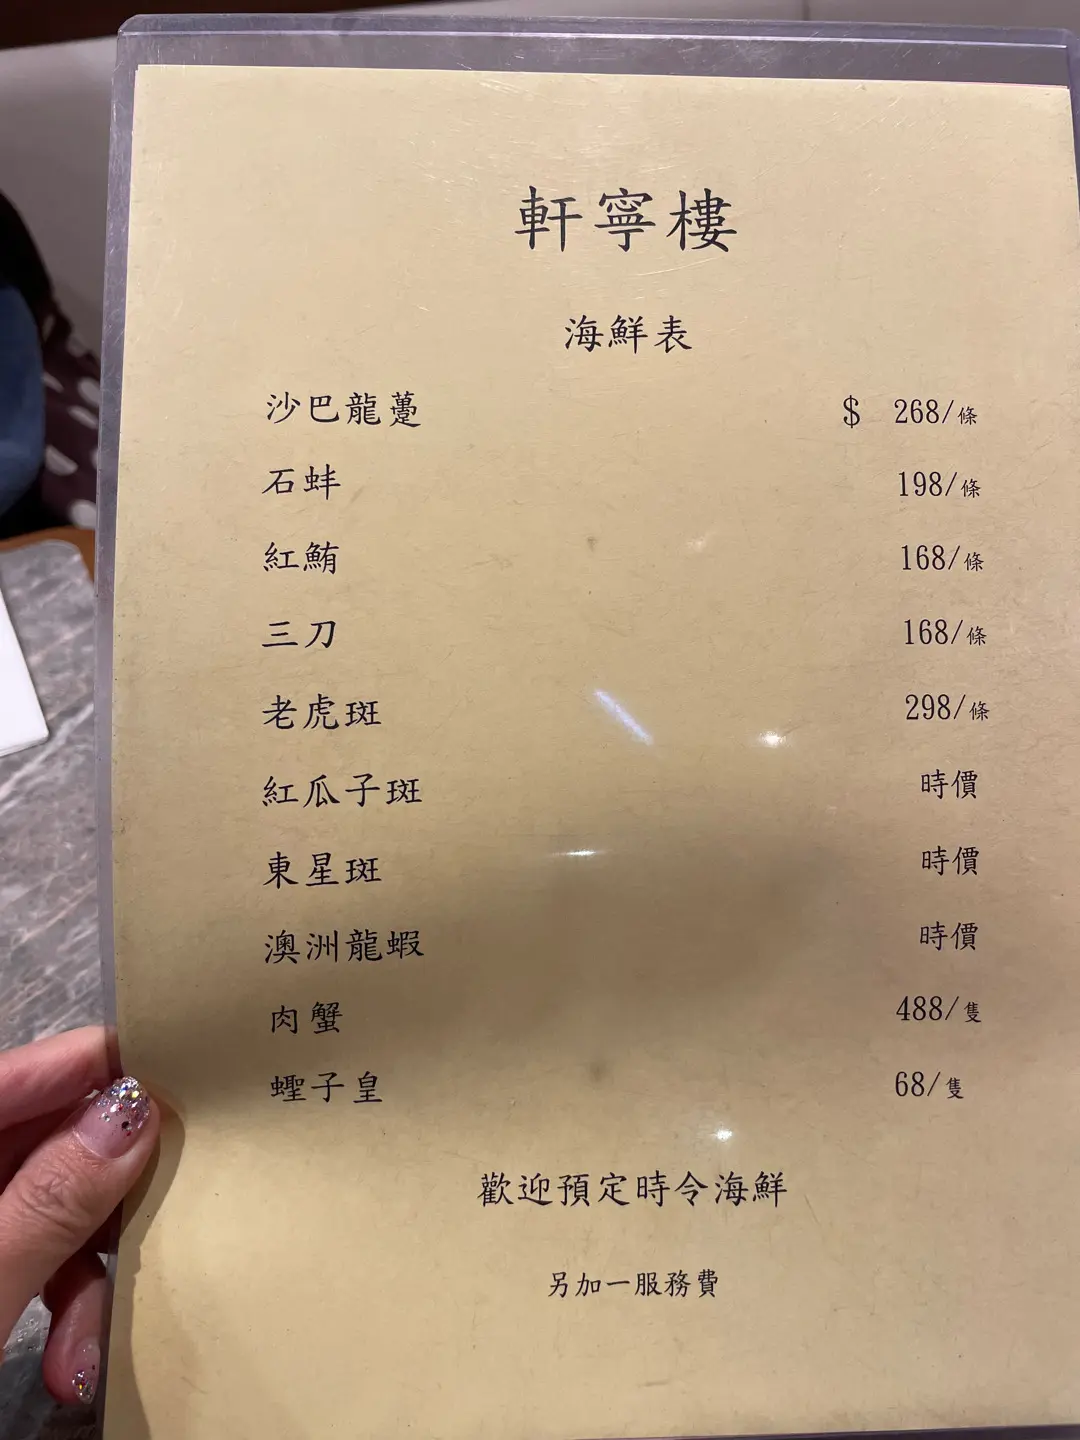 軒寧樓
海鮮表
沙巴龍躉 $ 268/條
石蚌 198/條
紅鮪 168/條
三刀 168/條
老虎斑 298/條
紅瓜子斑 時價
東星斑 時價
澳洲龍蝦 時價
肉蟹 488/隻
蟶子皇 68/隻
歡迎預定時令海鮮
另加一服務費